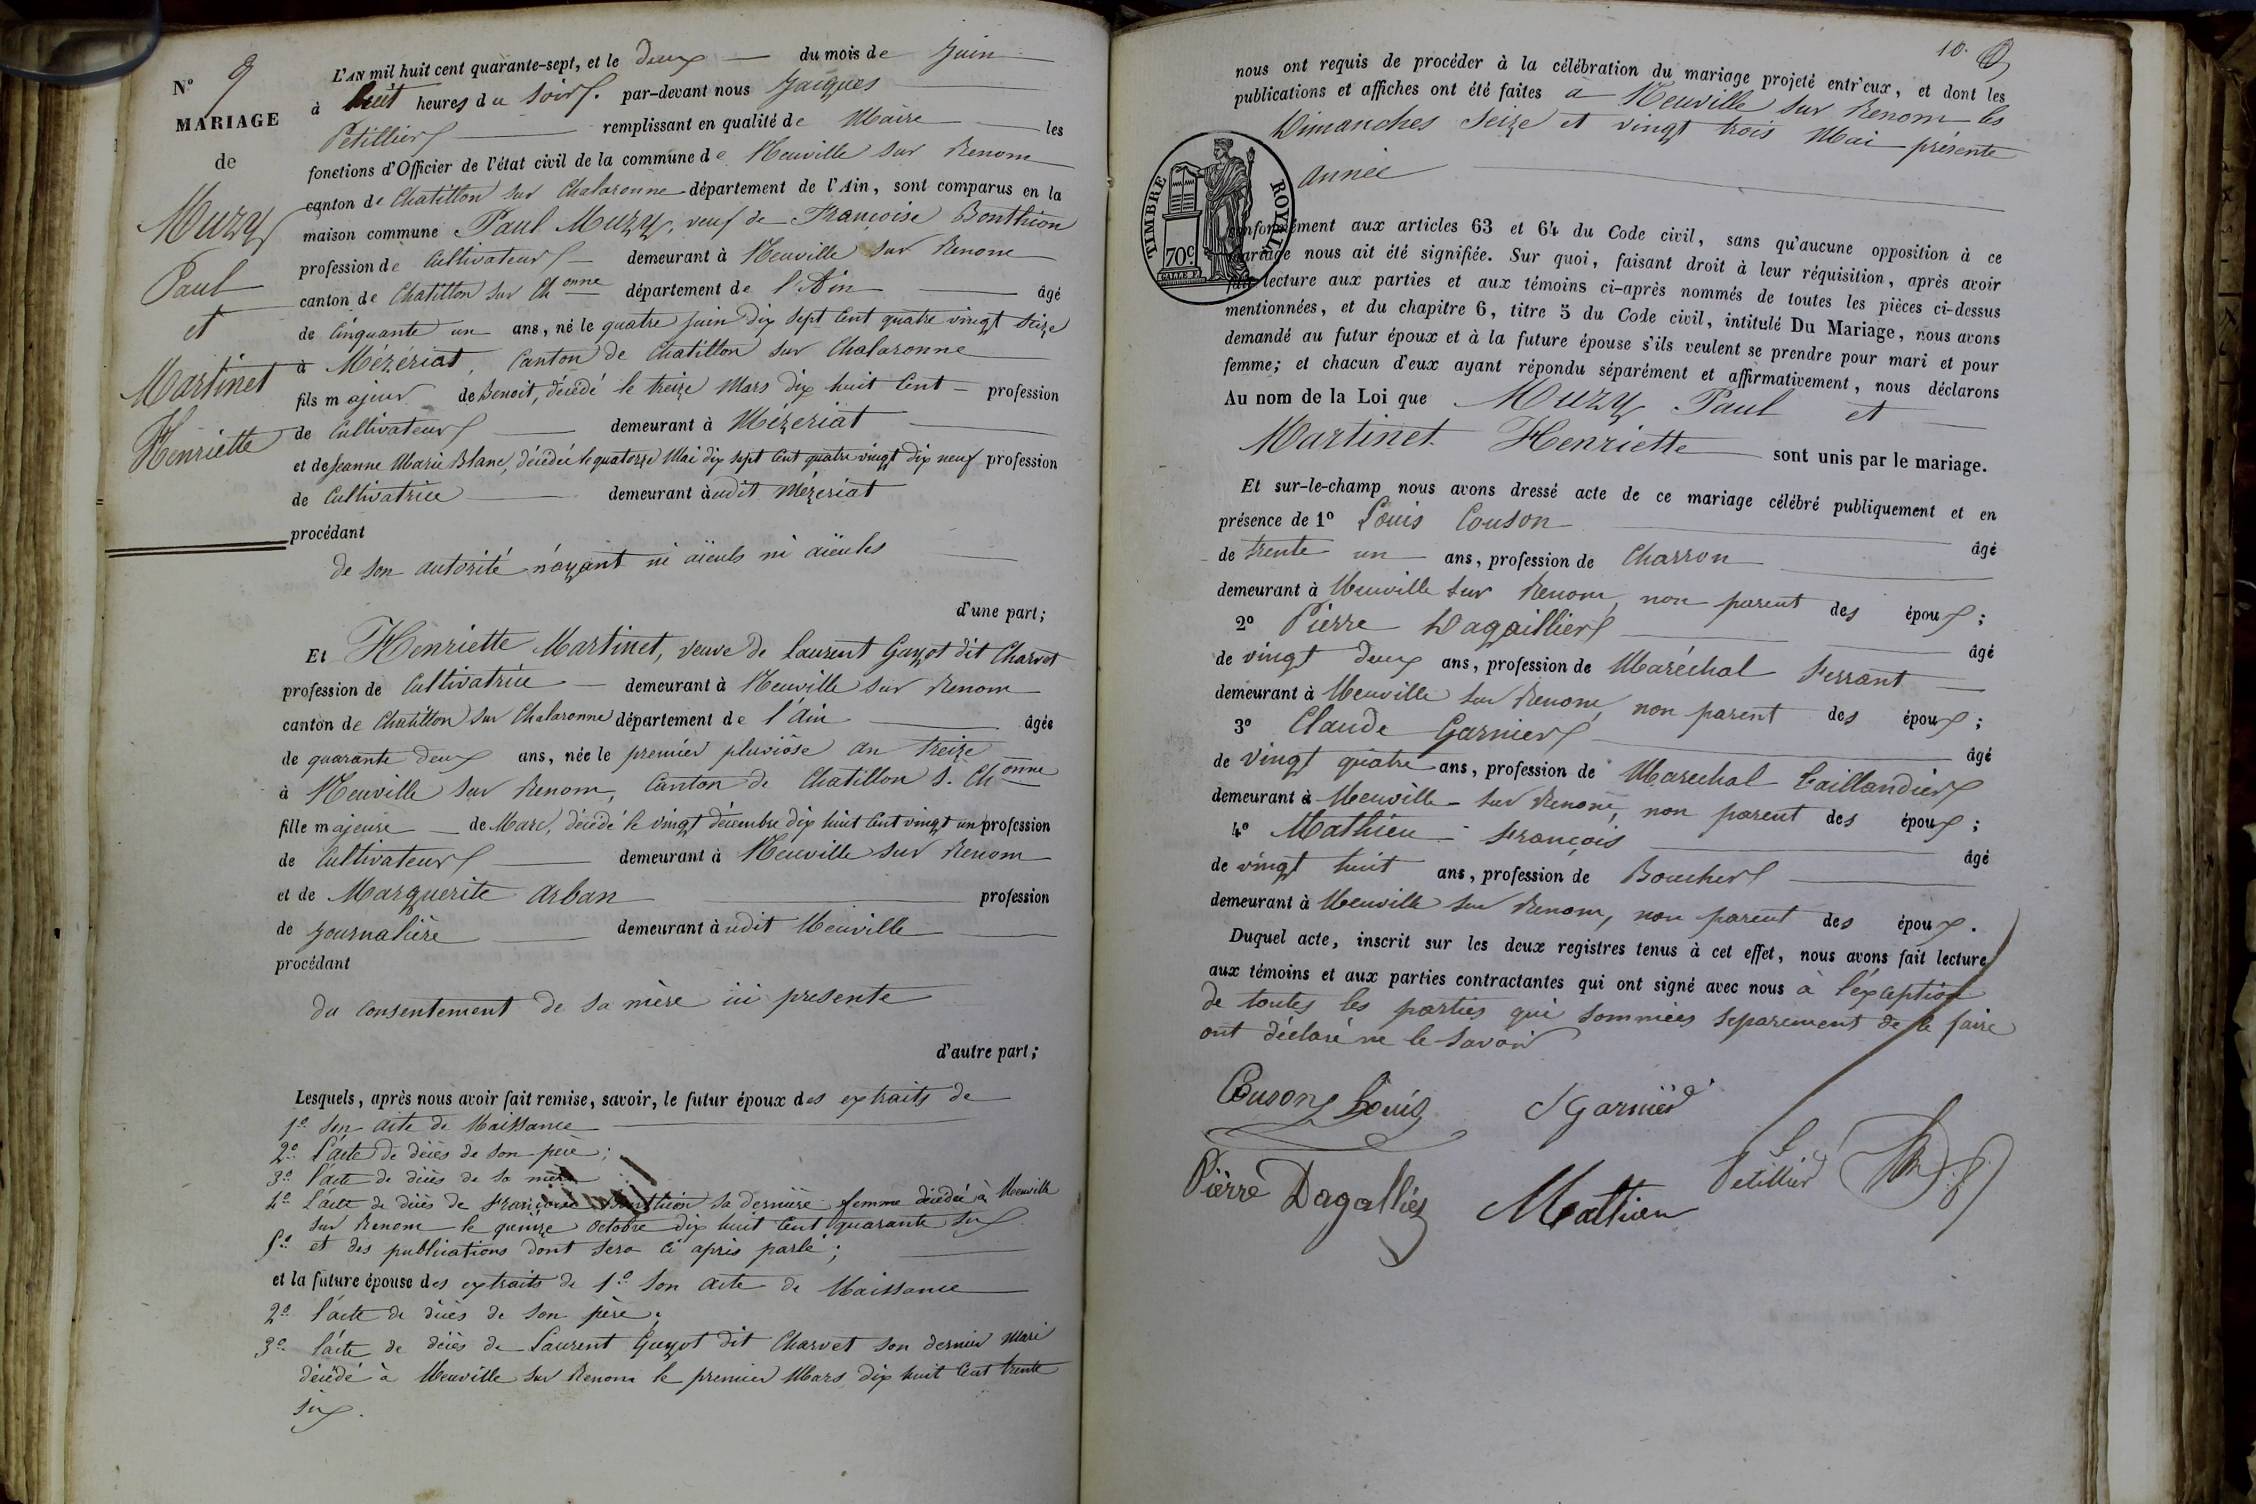 N° 9
MARIAGE
de
Muzy
Paul
et
Martinet
Henriette
L'AN mil huit cent quarante-sept, et le deux du mois de Juin
à huit heures du soir. par-devant nous Jacques
Petillier remplissant en qualité de Maire les
fonctions d'Officier de l'état civil de la commune de Neuville sur Renom
canton de Chatillon sur Chalaronne département de l'Ain, sont comparus en la
maison commune Paul Muzy, veuf de Françoise Bonthion
profession de Cultivateur demeurant à Neuville sur Renom
canton de Chatillon sur Chonne département de l'Ain âgé
de Cinquante un ans, né le quatre juin dix sept Cent quatre vingt seize
à Mézériat, Canton de Chatillon sur Chalaronne
fils majeur de Benoit, décédé le treize Mars dix huit Cent profession
de Cultivateur demeurant à Mézeriat
et de Jeanne Marie Blanc, décédée le quatorze Mai dix sept Cent quatre vingt dix neuf profession
de Cultivatrice demeurant àudit Mézeriat
procédant
de son autorité n'ayant ni aïeuls ni aïeules
d'une part;
Et Henriette Martinet, veuve de Laurent Guyot dit Charvet
profession de Cultivatrice demeurant à Neuville sur Renom
canton de Chatillon sur Chalaronne département de l'Ain âgée
de quarante deux ans, née le premier pluviôse an treize
à Neuville sur Renom, Canton de Chatillon s. Chonne
fille majeure de Marc, décédé le vingt décembre dix huit Cent vingt un profession
de Cultivateur demeurant à Neuville sur Renom
et de Marguerite Arban profession
de Journalière demeurant àudit Neuville
procédant
du consentement de sa mère ici presente
d'autre part;
Lesquels, après nous avoir fait remise, savoir, le futur époux des extraits de
1° son acte de Naissance
2° l'acte de décès de son père;
3° l'acte de décès de sa mère
4° l'acte de décès de Françoise Bonthion sa dernière femme décédée à Neuville
sur Renom le quinze octobre dix huit Cent quarante six
5° et des publications dont sera ci après parlé;
et la future épouse des extraits de 1° son acte de Naissance
2° l'acte de décès de son père;
3° l'acte de décès de Laurent Guyot dit Charvet son dernier mari
décédé à Neuville sur Renom le premier Mars dix huit Cent trente
six.
10.
nous ont requis de procéder à la célébration du mariage projeté entr'eux, et dont les
publications et affiches ont été faites à Neuville sur Renom les
Dimanches seize et vingt trois Mai présente
année
TIMBRE ROYAL
70c
conformément aux articles 63 et 64 du Code civil, sans qu'aucune opposition à ce
mariage nous ait été signifiée. Sur quoi, faisant droit à leur réquisition, après avoir
fait lecture aux parties et aux témoins ci-après nommés de toutes les pièces ci-dessus
mentionnées, et du chapitre 6, titre 5 du Code civil, intitulé Du Mariage, nous avons
demandé au futur époux et à la future épouse s'ils veulent se prendre pour mari et pour
femme; et chacun d'eux ayant répondu séparément et affirmativement, nous déclarons
Au nom de la Loi que Muzy Paul et
Martinet Henriette sont unis par le mariage.
Et sur-le-champ nous avons dressé acte de ce mariage célébré publiquement et en
présence de 1° Louis Couson âgé
de trente un ans, profession de Charron
demeurant à Neuville sur Renom, non parent des époux;
2° Pierre Dagaillier âgé
de vingt deux ans, profession de Maréchal Ferrant
demeurant à Neuville sur Renom, non parent des époux;
3° Claude Garnier âgé
de vingt quatre ans, profession de Marechal taillandier
demeurant à Neuville sur Renom, non parent des époux;
4° Mathieu François âgé
de vingt huit ans, profession de Boucher
demeurant à Neuville sur Renom, non parent des époux.
Duquel acte, inscrit sur les deux registres tenus à cet effet, nous avons fait lecture
aux témoins et aux parties contractantes qui ont signé avec nous à l'exception
de toutes les parties qui sommées séparement de le faire
ont déclaré ne le savoir
Couson Louis Garnier
Pierre Dagallier Mathieu Petillier